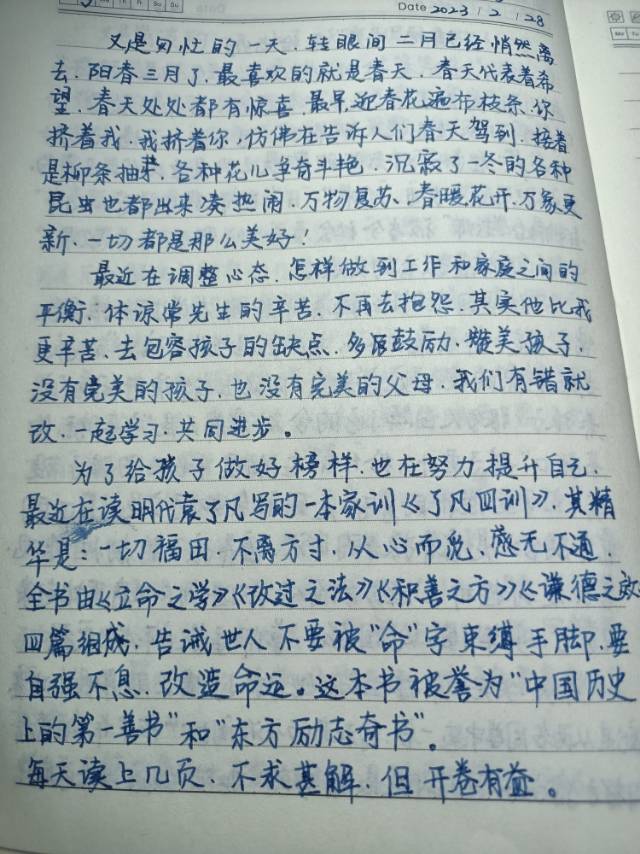 Mo Tu We Th Fr Sa Su
Date 2023 / 2 / 28
又是匆忙的一天、转眼间二月已经悄然离
去、阳春三月了、最喜欢的就是春天、春天代表着希
望、春天处处都有惊喜、最早迎春花遍布枝条、你
挤着我、我挤着你,仿佛在告诉人们春天驾到、接着
是柳条抽芽、各种花儿争奇斗艳、沉寂了一冬的各种
昆虫也都出来凑热闹、万物复苏、春暖花开、万象更
新、一切都是那么美好!
最近在调整心态、怎样做到工作和家庭之间的
平衡、体谅常先生的辛苦、不再去抱怨、其实他比我
更辛苦、去包容孩子的缺点、多多鼓励、赞美孩子、
没有完美的孩子、也没有完美的父母、我们有错就
改、一起学习、共同进步。
为了给孩子做好榜样、也在努力提升自己、
最近在读明代袁了凡写的一本家训《了凡四训》、其精
华是:一切福田、不离方寸、从心而觅、感无不通、
全书由《立命之学》《改过之法》《积善之方》《谦德之效
四篇组成、告诫世人不要被“命”字束缚手脚、要
自强不息、改造命运。这本书被誉为“中国历史
上的第一善书”和“东方励志奇书”。
每天读上几页、不求甚解、但开卷有益。